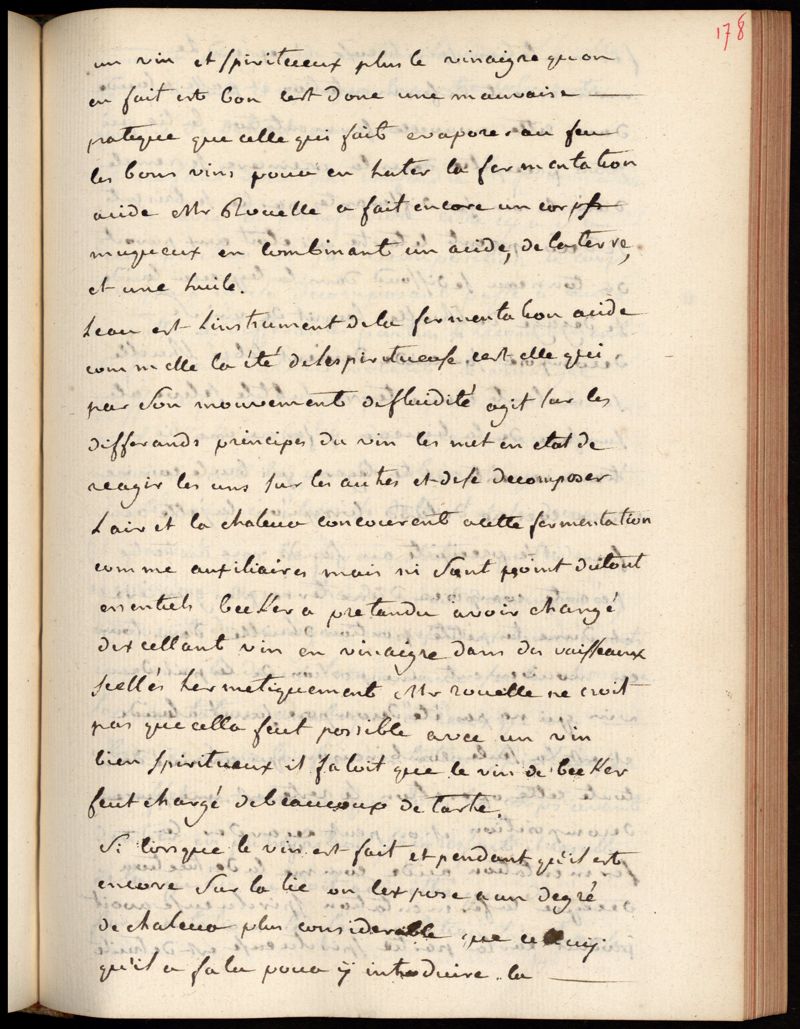 178
un vin est spiritueux plus le vinaigre quon
en fait est bon cest donc une mauvaise
pratique que celle qui fait evaporer au feu
les bons vins pour en hater la fermentation
acide Mr Rouelle a fait encore un corps
muqueux en combinant un acide, de la terre,
et une huile.
Leau est linstrument de la fermentation acide
comm elle la été de lespiritueuse cest elle qui
par son mouvement de fluidité agit sur les
differands principes du vin les met en etat de
reagir les uns sur les autres et de se decomposer
Lair et la chaleur concourent a cette fermentation
comme auxiliaires mais ni sont point du tout
essentiels becKer a pretandu avoir changé
dexcellant vin en vinaigre dans des vaisseaux
scellés hermetiquement Mr rouelle ne croit
pas que cella feut possible avec un vin
bien spiritueux il faloit que le vin de becKer
feut chargé de beaucoup de tartre.
Si lorsque le vin est fait et pendant qu'il est
encore sur la lie on lexpose a un degré
de chaleur plus considerable que celuy
qu'il a falu pour ÿ introduire la